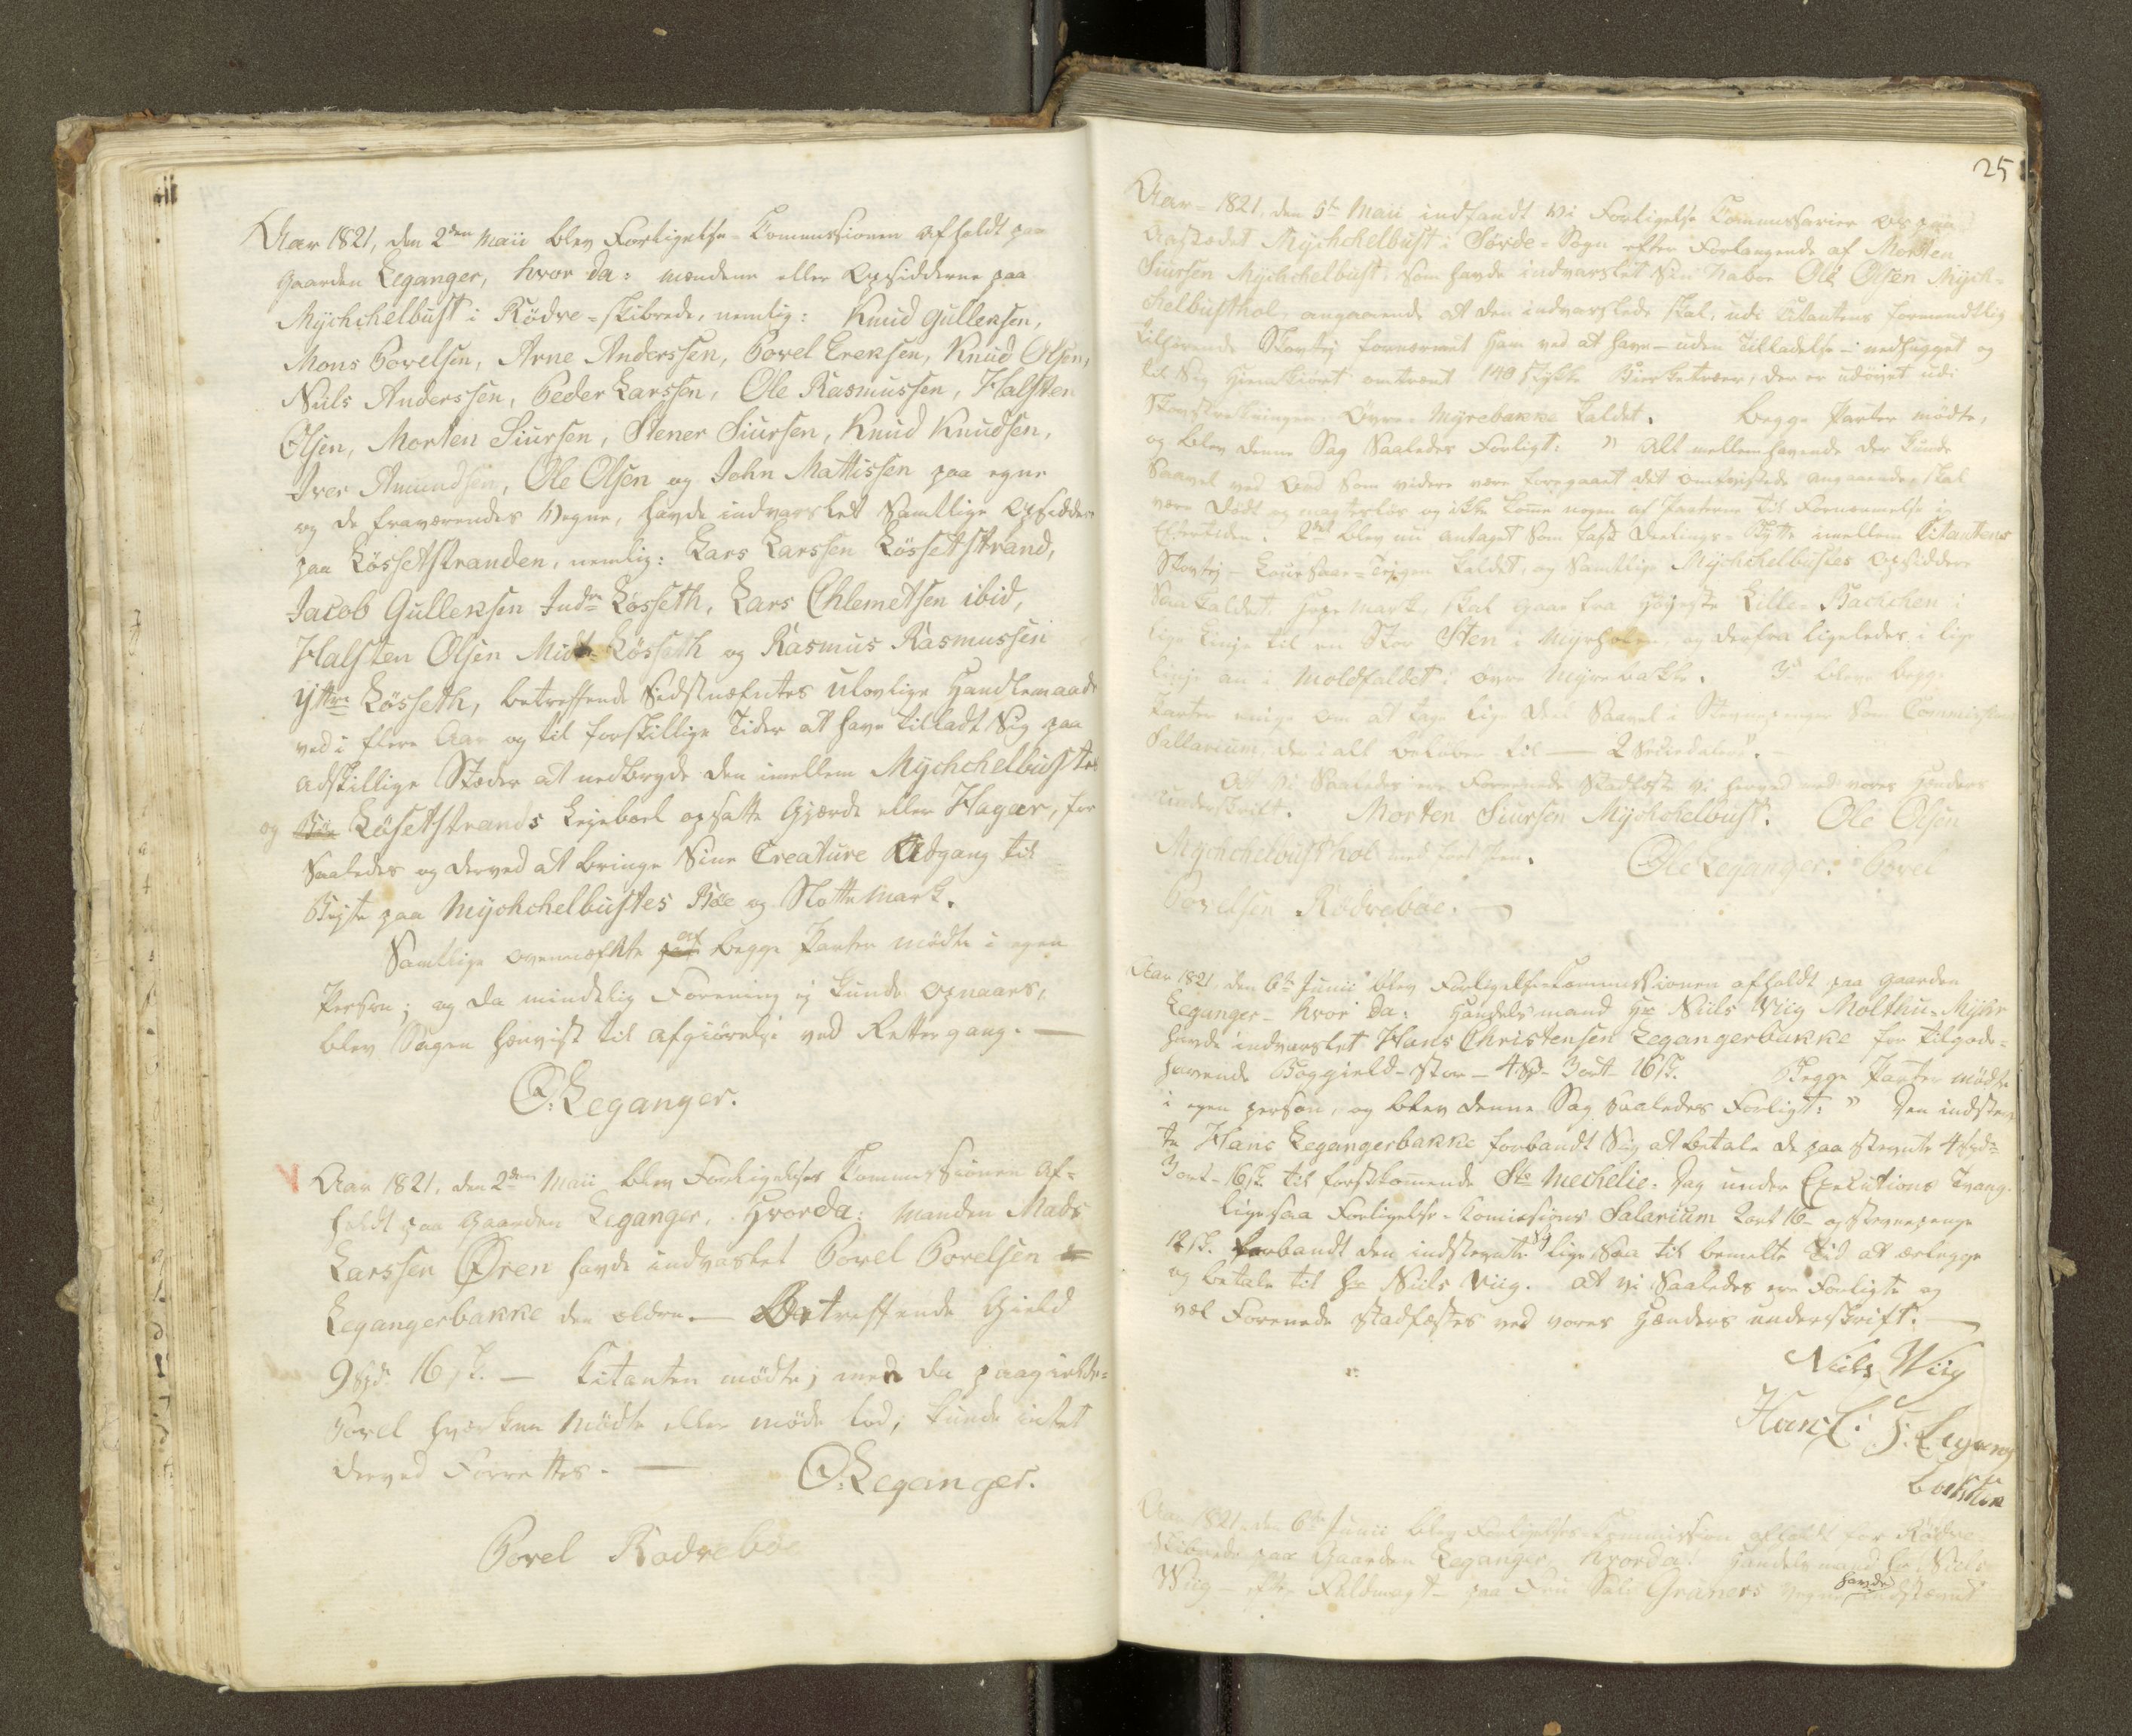 Aar 1821, den 2den Maii blev Forligelse-Commissionen afholdt paa
Gaarden Leganger, hvor da: mændene eller Opsidderne paa
Mychchelbust i Rödve-skibrede, nemlig: Knud Gullersen,
Mons Povelsen, Arne Anderssen, Povel Ereksen, Knud Olsen,
Niils Anderssen, Peder Larssen, Ole Rasmussen, Halsten
Olsen, Morten Siursen, Stener Siursen, Knud Knudsen,
Iver Amundsen, Ole Olsen og John Mattissen paa egne
og de fraværendes Vegne, havde indvarslet Samtlige Opsiddere
paa Lössetstranden, nemlig: Lars Larssen Lössetstrand,
Jacob Gulleksen Indre Lösseth, Lars Chlemetsen ibid,
Halsten Olsen Midt-Lösseth og Rasmus Rasmussen
Yttre Lösseth, betreffende Sidstnæfntes ulovlige Handlemaade
ved i flere Aar og til forskillige Tider at have tilladt Sig paa
adskillige Stæder at nedbryde den imellem Mychchelbustes
og Lösetstrands Lejeboel opsatte Gjærde eller Hager, for
Saaledes og derved at bringe Sine Creature Adgang til
Bejte paa Mychchelbustes Böe og Slotte Mark.
Samtlige ovennæfnte af begge Parter mödte i egen
Person; og da mindelig Forening ej kunde opnaaes,
blev Sagen henvist til afgiörelse ved Rettergang. —
O. Leganger.
V Aar 1821, den 2den Maii blev Forligelses Commissionen af-
holdt paa Gaarden Leganger, Hvorda: Manden Mads
Larssen Øren havde indvarslet Povel Povelsen
Legangerbakke den ældre. — Betreffende Gield
9 Spd. 16 sk. — Citanten mödte, men da paagieldende
Povel hverken Mödte eller möde lod, kunde intet
derved Forrettes. — O. Leganger.
Povel Rödveböe
25
Aar 1821, den 5te Maii indfandt Vi Forligelse Commissarier os paa
Aastædet Mychchelbust i Sörde-Sogn efter Forlangende af Morten
Siursen Mychchelbust, som havde indvarslet Sin Naboe Ole Olsen Mych-
chelbusthol, angaaende at den indvarslede skal, udi Citantens formendtlig
tilhörende Skovtej fornærmet Ham ved at have — uden Tilladelse — nedhugget og
til Sig Hjemkiört omtrent 140 stykke Birketræer, der er udövet udi
Skovstrækningen Övre-Myrebakke kaldet. Begge Parter mödte,
og blev denne Sag Saaledes Forligt: " Alt mellemhavende der kunde
Saavel ved Ord som videre være foregaaet det omtvistede angaaende, skal
være Dödt og magteslös og ikke komme nogen af Parterne til Fornærmelse i
Eftertiden. 2det blev nu antaget Som fast Deelings-Skytte imellem Citantens
Skovtej — kaldet, og Samtlige Mychchelbustes Opsiddere
Saa kaldet mark, skal gaae fra Höjeste Lille-Bachchen i
lige Linje til en Stor Sten i Myrholen, og derfra ligeledes i lige
linje an i Moldfaldet i övre Myrebakke. blev begge
Parter enige om at tage lige Deel Saavel i Stevnepenger som Commissions
Sallarium, der i alt belöber til — 2 Speciedaler".
At Vi Saaledes ere Forenede Stadfæste Vi herved med vores Hænders
underskrift. Morten Siursen Mychchelbust. Ole Olsen
Mychchelbusthol med fört Pen. Ole Leganger. Povel
Povelsen Rödveböe. —
Aar 1821, den 6te Junii blev Forligelse-Commissionen afholdt paa Gaarden
Leganger — hvor da: Handelsmand Hr. Niils Wiig Molthu-Myhr
havde indvarslet Hans Christensen Legangerbakke for tilgode-
havende Boggield-stor — 4 Sp- 3 ort- 16 sk. Begge Parter mödte
i egen person, og blev denne Sag saaledes Forligt: " Den indstevn-
te Hans Legangerbakke forbandt Sig at betale de paastevnte 4 Spd
3 ort- 16 sk til forstkommende Ste Mechelie-Dag under Executions Tvang.
ligesaa Forligelse-Comissions Salarium 2 ort 16- og stevnepenge
12 sk. forbandt den indstevnte sig lige Saa til bemelte Tid at erlegge
og betale til Hr. Niils Viig. At vi Saaledes ere Forligte og
vel Forenede stadfæstes ved vores Hænders underskrift. —
Niels Wiig
Hans C: S. Legang
backken
Aar 1821, den 6te Junii blev Forligelses-Commission afholdt for Rödve
Skibrede paa Gaarden Leganger, hvorda: Handelsmand Hr. Niels
Wiig — efter Fuldmagt — paa Fru Sal. Gruners vegne havde indstevnt